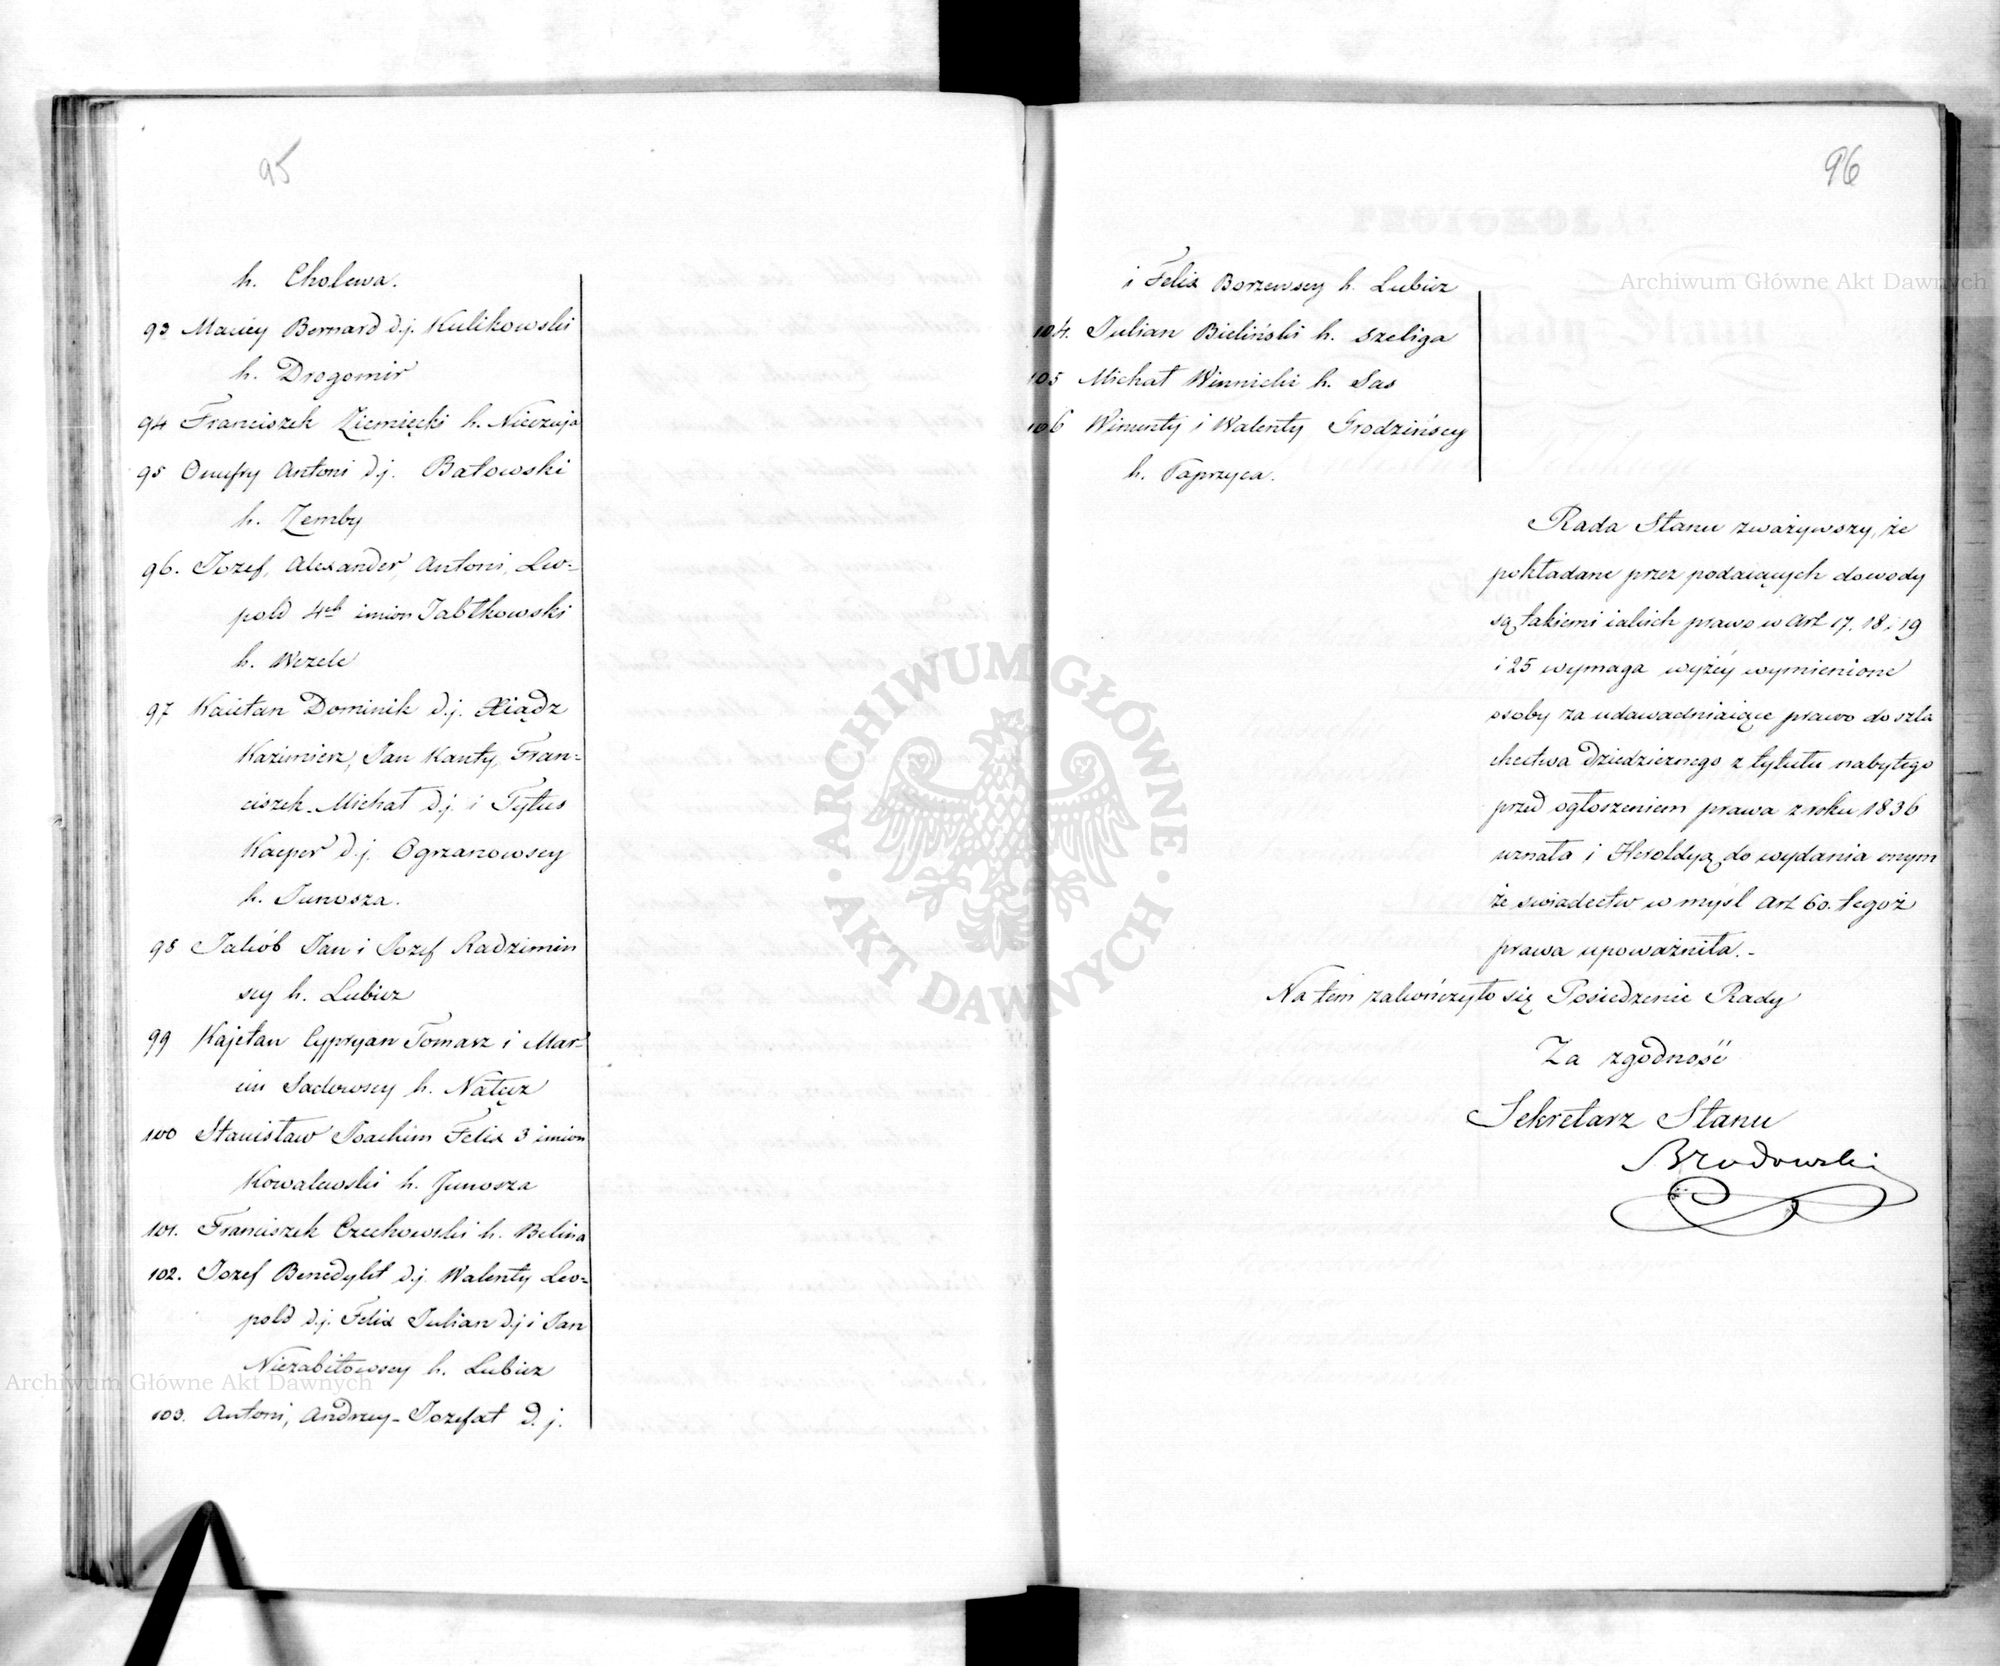 95
h. Cholewa.
93 Maciey Bernard d.j. Kulikowski
h. Drogomir
94 Franciszek Ziemięcki h. Nieczuja
95 Onufry Antoni d.j. Batowski
h. Zemby
96. Jozef, Alexander, Antoni, Leo-
pold 4ch imion Jabłkowski
h. Wczele
97 Kaietan Dominik d.j. Xiądz
Kazimierz, Jan Kanty, Fran-
ciszek-Michał d.j. i Tytus
Kacper d.j. Ogrzanowscy
h. Junosza.
98 Jakób Jan i Jozef Radzimin
scy h. Lubicz
99 Kajetan Cypryan Tomasz i Mar-
cin Sadowscy h. Nałęcz
100 Stanisław Joachim Felix 3 imion
Kowalewski h. Junosza
101. Franciszek Czechowski h. Belina
102. Jozef Benedykt d.j. Walenty Leo-
pold d.j. Felix Julian d.j. i Jan
Niezabitowscy h. Lubicz
103. Antoni, Andrzey-Jozefat d.j.
96
i Felix Borzewscy h. Lubicz
104. Julian Bieliński h. Szeliga
105 Michał Winnicki h. Sas
106 Wincenty i Walenty Grodzińscy
h. Paprzyca.
Rada Stanu zważywszy, że
pokładane przez podaiących dowody
są takiemi iakich prawo w Art 17. 18 i 19
i 25 wymaga wyżéy wymienione
osoby za udawadniaiące prawo do szla
chectwa dziedzicznego z tytułu nabytego
przed ogłoszeniem prawa z roku 1836
uznała i Heroldyą do wydania onym
że swiadectw w myśl Art 60. tegoż
prawa upoważniła.-
Na tem zakończyło się Posiedzenie Rady
Za zgodność
Sekretarz Stanu
Brodowski
Archiwum Główne Akt Dawnych
Archiwum Główne Akt Dawnych
ARCHIWUM GŁÓWNE
AKT DAWNYCH